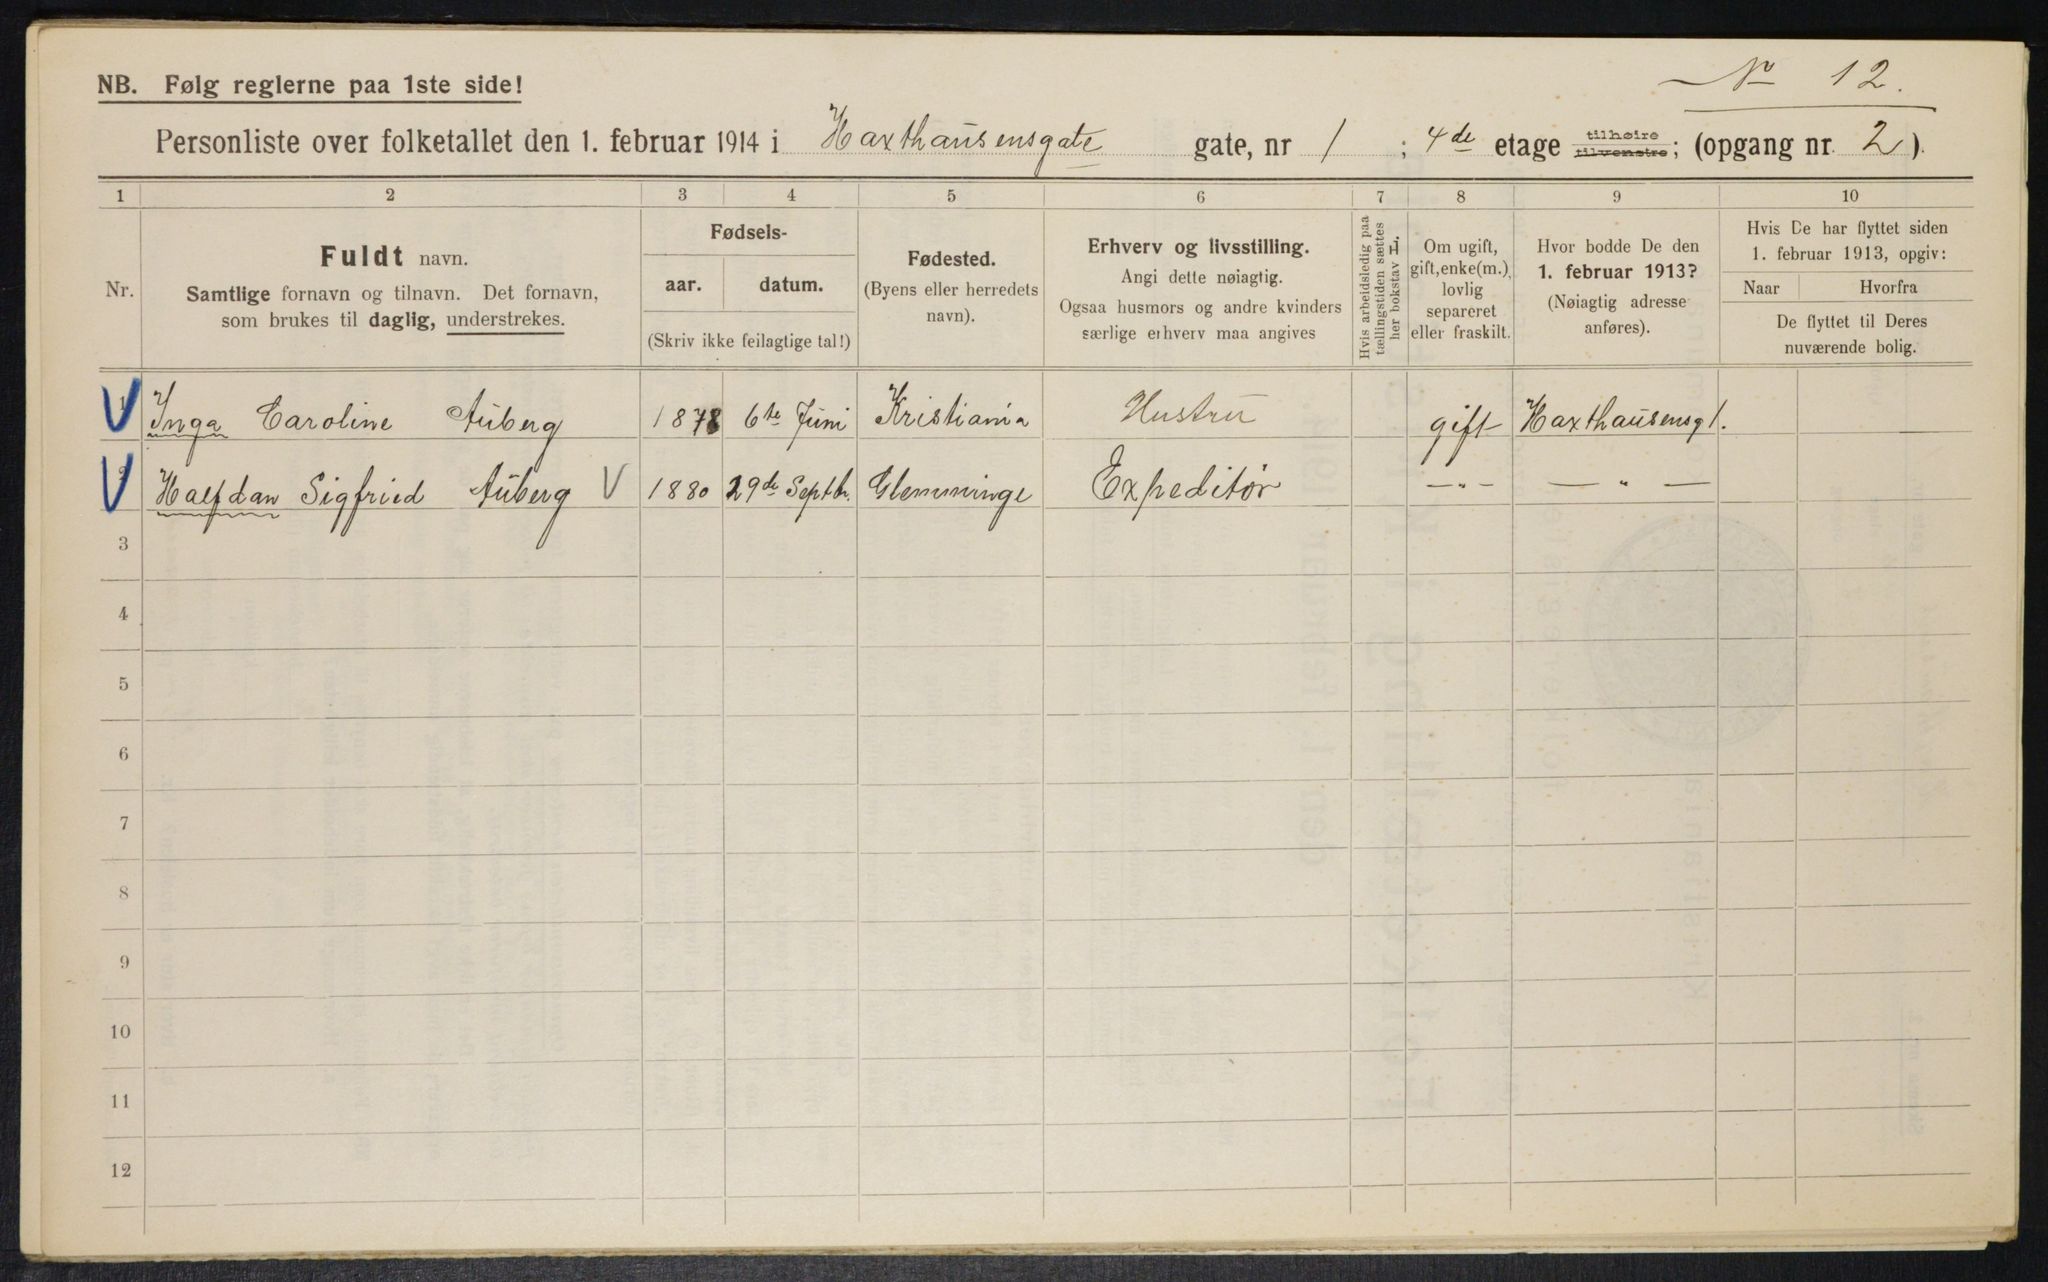 NB. Følg reglerne paa 1ste side!
No 12.
Personliste over folketallet den 1. februar 1914 i Haxthausensgate gate, nr 1 ; 4de etage tilhøire tilvenstre; (opgang nr. 2).
1 2 3 4 5 6 7 8 9 10
Nr.
Fuldt navn.
Samtlige fornavn og tilnavn. Det fornavn,
som brukes til daglig, understrekes.
Fødsels-
aar. datum.
(Skriv ikke feilagtige tal!)
Fødested.
(Byens eller herredets
navn).
Erhverv og livsstilling.
Angi dette nøiagtig.
Ogsaa husmors og andre kvinders
særlige erhverv maa angives
Hvis arbeidsledig paa
tællingstiden sættes
her bokstav L.
Om ugift,
gift, enke(m.),
lovlig
separeret
eller fraskilt.
Hvor bodde De den
1. februar 1913?
(Nøiagtig adresse
anføres).
Hvis De har flyttet siden
1. februar 1913, opgiv:
Naar Hvorfra
De flyttet til Deres
nuværende bolig.
1 Inga Caroline Auberg 1878 6te Juni Kristiania Hustru gift Haxthausensg 1.
2 Halfdan Sigfried Auberg V 1880 29de Septbr. Glemminge Expeditør — " — — " —
3
4
5
6
7
8
9
10
11
12